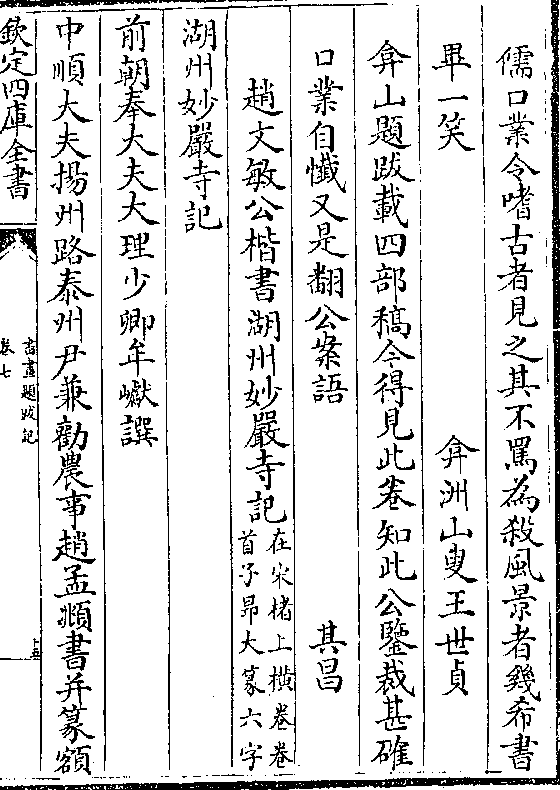 儒口業令嗜古者見之其不罵為殺風景者幾希書
畢一笑　弇洲山叟王世貞
弇山題跋載四部稿今得見此卷知此公鑒裁甚確
口業自懺又是翻公案語　其昌
趙文敏公楷書湖州妙嚴寺記在宋楮上橫卷卷
首子昂大篆六字
湖州妙嚴寺記
前朝奉大夫大理少卿牟巘譔
中順大夫揚州路泰州尹兼勸農事趙孟頫書并篆額
欽定四庫全書
書畫題跋記
卷七